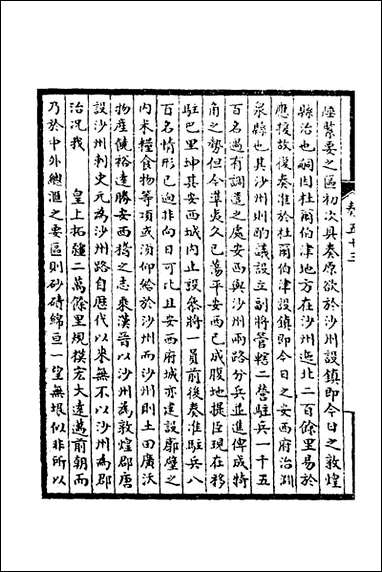 陲緊要之區初次具奏原欲於沙州設鎮即今日之敦煌
縣治也嗣因杜爾伯津地方在沙州迤北二百餘里易於
應援故復奏准於杜爾伯津設鎮即今日之安西府治淵
泉縣也其沙州則酌議設立副將管轄二營駐兵一千五
百名遇有調遣之處安西與沙州兩路分兵並進俾成犄
角之勢但今準夷久已蕩平安西已成腹地提臣現在移
駐巴里坤其安西城內止設叅將一員前後奏准駐兵八
百名情形已迥非向日可比且安西府城亦建設廓壁之
內米糧食物等項或須仰給於沙州而沙州則土田廣沃
物產饒裕遠勝安西揆之志乘漢晉以沙州為敦煌郡唐
設沙州刺史元為沙州路自歷代以來無不以沙州為郡
治况我 皇上拓疆二萬餘里規模宏大遠邁前朝而
乃於中外總滙之要區則砂磧綿亘一望無垠似非所以
奏五十三